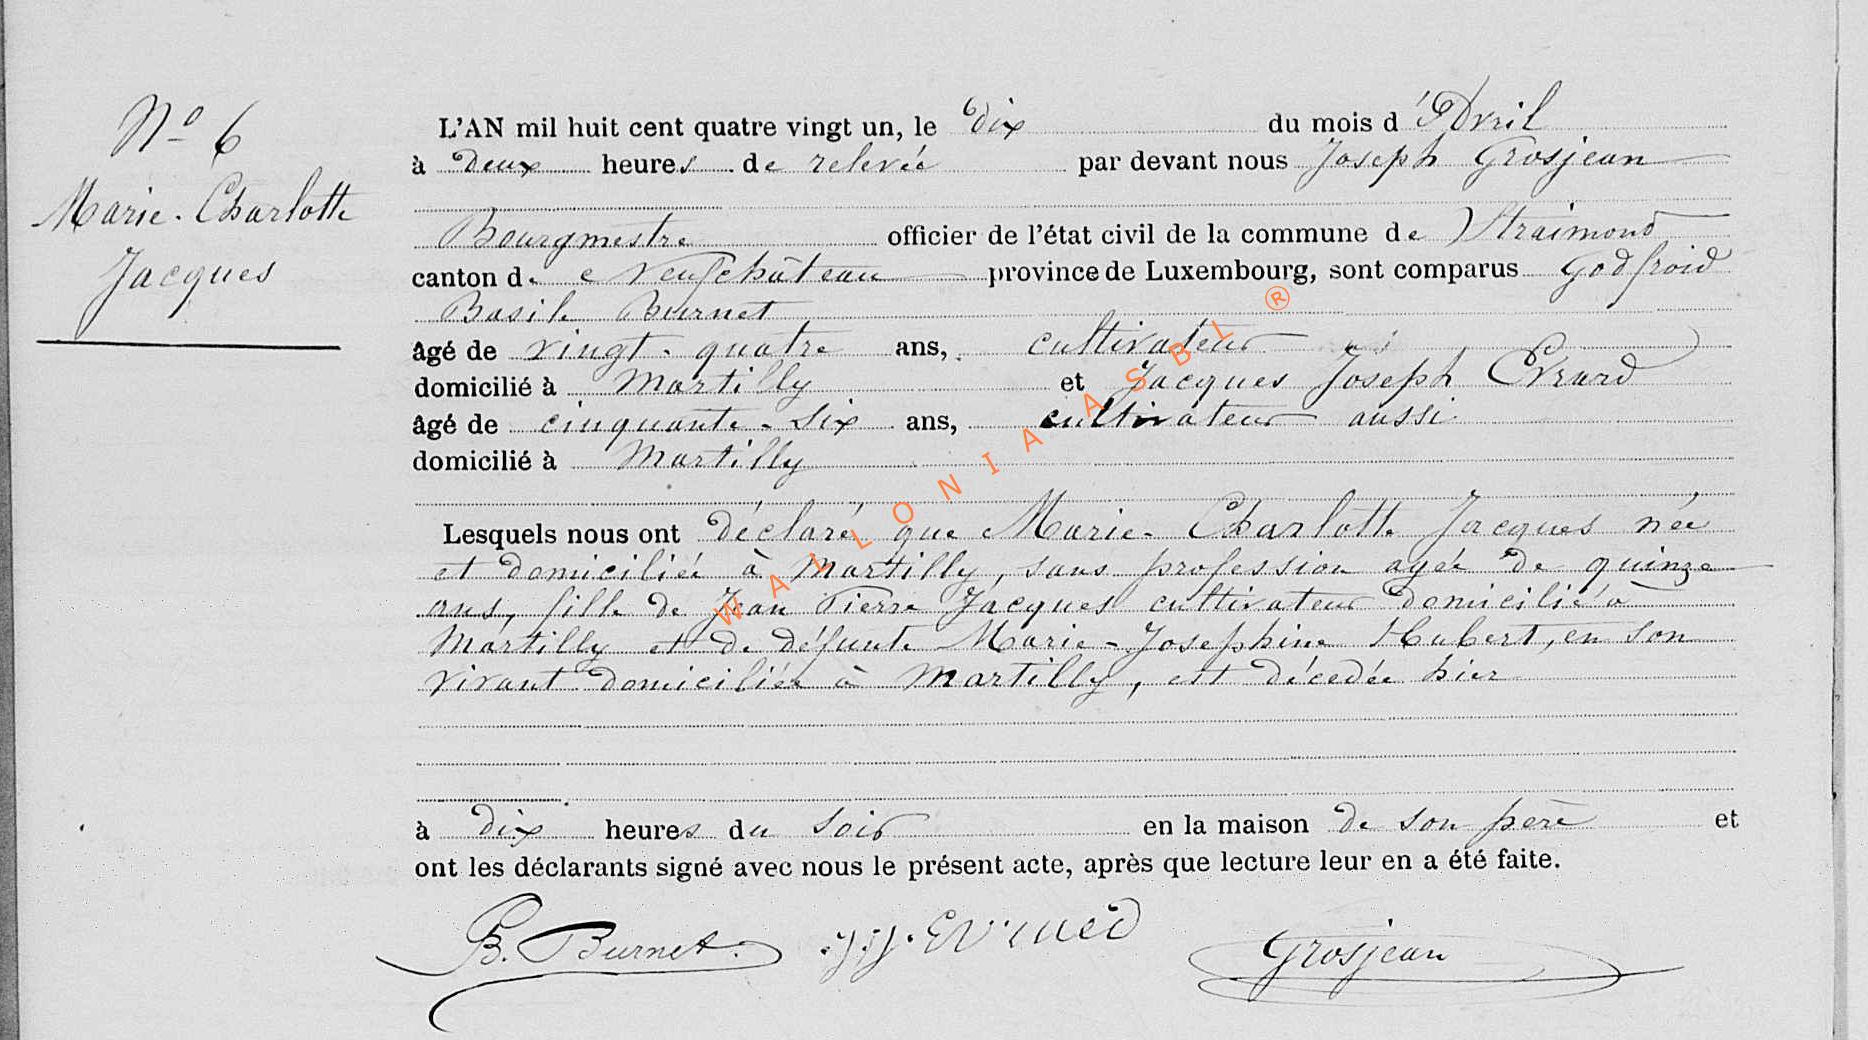 Nº 6
Marie-Charlotte
Jacques
L'AN mil huit cent quatre vingt un, le dix du mois d'Avril
à deux heures de relevée par devant nous Joseph Grosjean
Bourgmestre officier de l'état civil de la commune de Straimont
canton de Neufchâteau province de Luxembourg, sont comparus Godfroid
Basile Burnet
âgé de vingt-quatre ans, cultivateur
domicilié à Martilly et Jacques Joseph Evrard
âgé de cinquante-six ans, cultivateur aussi
domicilié à Martilly
Lesquels nous ont déclaré que Marie-Charlotte Jacques née
et domiciliée à Martilly, sans profession agée de quinze
ans, fille de Jean Pierre Jacques cultivateur domicilié à
Martilly et de défunte Marie-Josephine Hubert, en son
vivant domiciliée à Martilly, est décedée hier
à dix heures du soir en la maison de son père et
ont les déclarants signé avec nous le présent acte, après que lecture leur en a été faite.
B. Burnet. J.J. Evrard Grosjean
WALLONIA ASBL ®